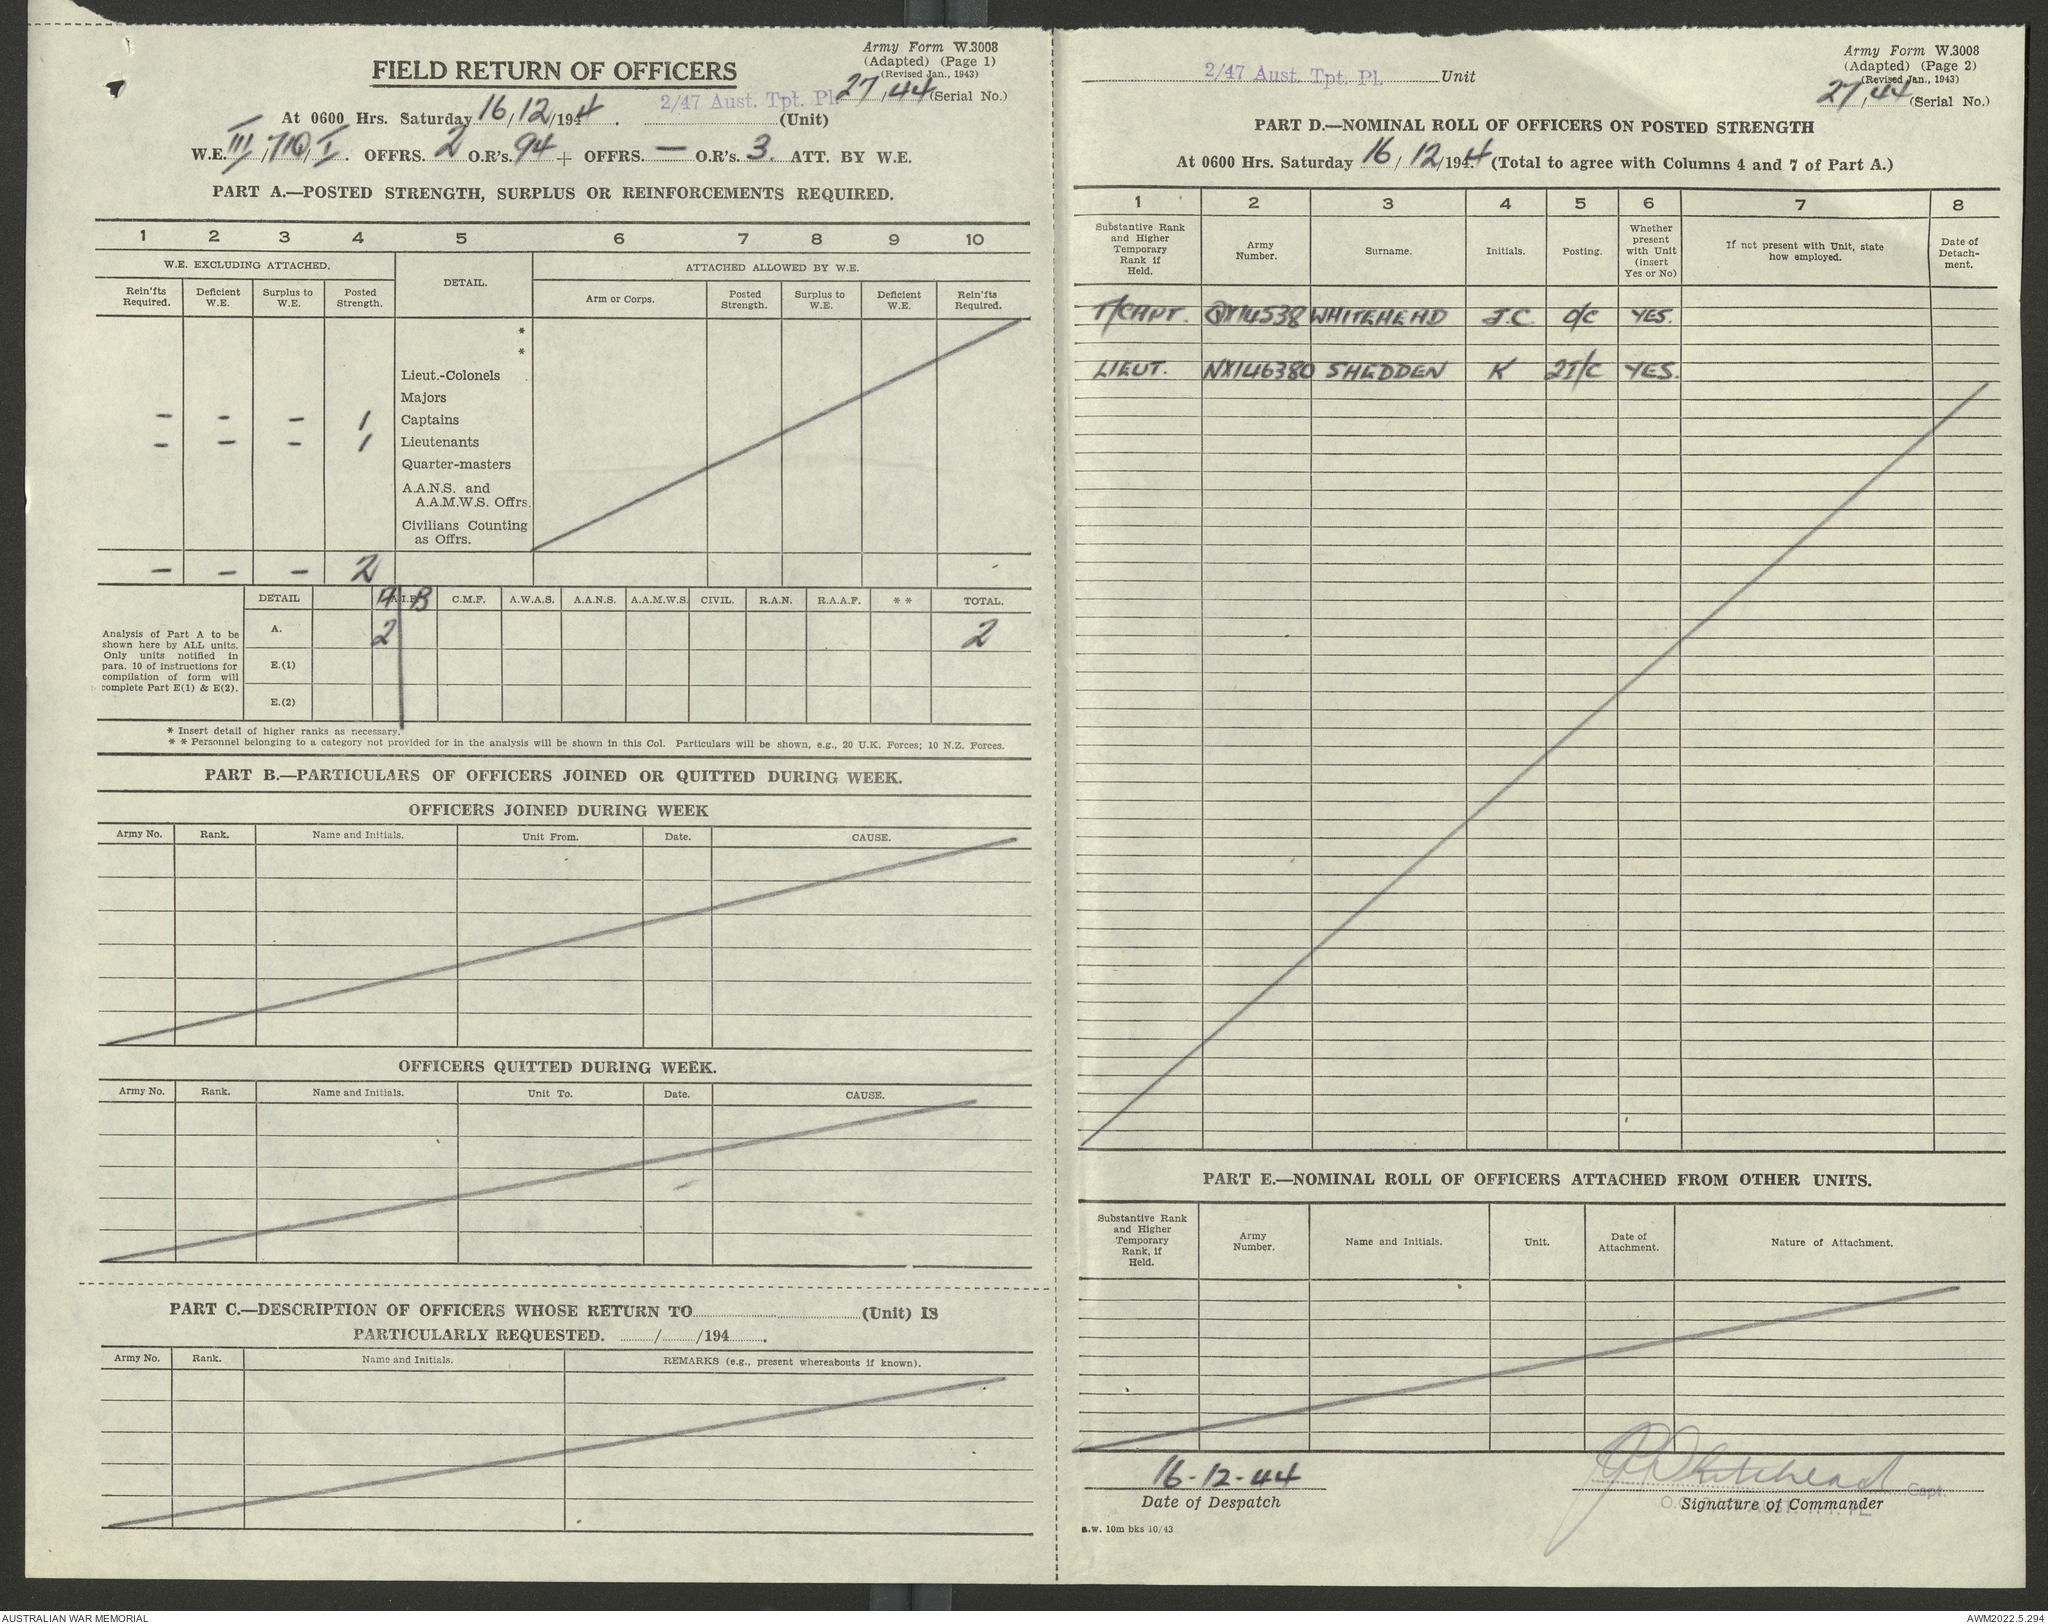 Army Form W.3008
(Adapted) (Page 1)
(Revised Jan., 1943)
FIELD RETURN OF OFFICERS
27/44 (Serial No.)
At 0600 Hrs. Saturday 16/12/1944. 2/47 Aust. Tpt. Pl. (Unit)
W.E. III/710/I. OFFRS. 2 O.R's. 94 + OFFRS. — O.R's. 3. ATT. BY W.E.
PART A.—POSTED STRENGTH, SURPLUS OR REINFORCEMENTS REQUIRED.
1 2 3 4 5 6 7 8 9 10
W.E. EXCLUDING ATTACHED. DETAIL. ATTACHED ALLOWED BY W.E.
Rein'fts Required. Deficient W.E. Surplus to W.E. Posted Strength. Arm or Corps. Posted Strength. Surplus to W.E. Deficient W.E. Rein'fts Required.
*
*
Lieut.-Colonels
Majors
– – – 1 Captains
– – – 1 Lieutenants
Quarter-masters
A.A.N.S. and
A.A.M.W.S. Offrs.
Civilians Counting
as Offrs.
– – – 2
DETAIL A A.I.F. B C.M.F. A.W.A.S. A.A.N.S. A.A.M.W.S. CIVIL. R.A.N. R.A.A.F. * * TOTAL.
A. 2 2
E.(1)
E.(2)
Analysis of Part A to be
shown here by ALL units.
Only units notified in
para. 10 of instructions for
compilation of form will
complete Part E(1) & E(2).
* Insert detail of higher ranks as necessary.
* * Personnel belonging to a category not provided for in the analysis will be shown in this Col. Particulars will be shown, e.g., 20 U.K. Forces; 10 N.Z. Forces.
PART B.—PARTICULARS OF OFFICERS JOINED OR QUITTED DURING WEEK.
OFFICERS JOINED DURING WEEK
Army No. Rank. Name and Initials. Unit From. Date. CAUSE.
OFFICERS QUITTED DURING WEEK.
Army No. Rank. Name and Initials. Unit To. Date. CAUSE.
PART C.—DESCRIPTION OF OFFICERS WHOSE RETURN TO (Unit) IS
PARTICULARLY REQUESTED. / /194 .
Army No. Rank. Name and Initials. REMARKS (e.g., present whereabouts if known).
Army Form W.3008
(Adapted) (Page 2)
(Revised Jan., 1943)
2/47 Aust. Tpt. Pl. Unit
27/44 (Serial No.)
PART D.—NOMINAL ROLL OF OFFICERS ON POSTED STRENGTH
At 0600 Hrs. Saturday 16/12/1944 (Total to agree with Columns 4 and 7 of Part A.)
1 2 3 4 5 6 7 8
Substantive Rank and Higher Temporary Rank if Held. Army Number. Surname. Initials. Posting. Whether present with Unit (insert Yes or No) If not present with Unit, state how employed. Date of Detach-ment.
T/CAPT. QX14538 WHITEHEAD J.C. O/C YES.
LIEUT. NX146380 SHEDDEN K 2I/C YES.
PART E.—NOMINAL ROLL OF OFFICERS ATTACHED FROM OTHER UNITS.
Substantive Rank and Higher Temporary Rank, if Held. Army Number. Name and Initials. Unit. Date of Attachment. Nature of Attachment.
16-12-44
Date of Despatch
JCWhitehead Capt.
Signature of Commander
a.w. 10m bks 10/43
AUSTRALIAN WAR MEMORIAL
AWM2022.5.294